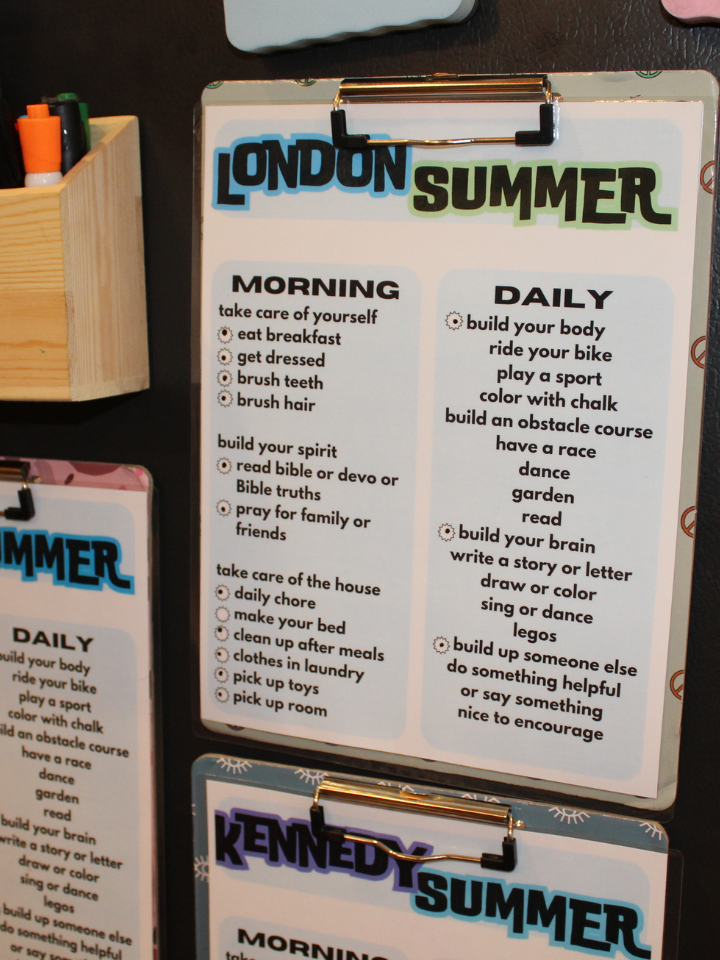 LONDON SUMMER
MORNING
take care of yourself
eat breakfast
get dressed
brush teeth
brush hair
build your spirit
read bible or devo or
Bible truths
pray for family or
friends
take care of the house
daily chore
make your bed
clean up after meals
clothes in laundry
pick up toys
pick up room
DAILY
build your body
ride your bike
play a sport
color with chalk
build an obstacle course
have a race
dance
garden
read
build your brain
write a story or letter
draw or color
sing or dance
legos
build up someone else
do something helpful
or say something
nice to encourage
UMMER
DAILY
build your body
ride your bike
play a sport
color with chalk
ild an obstacle course
have a race
dance
garden
read
build your brain
write a story or letter
draw or color
sing or dance
legos
build up someone else
do something helpful
or say
KENNEDY SUMMER
MORNING